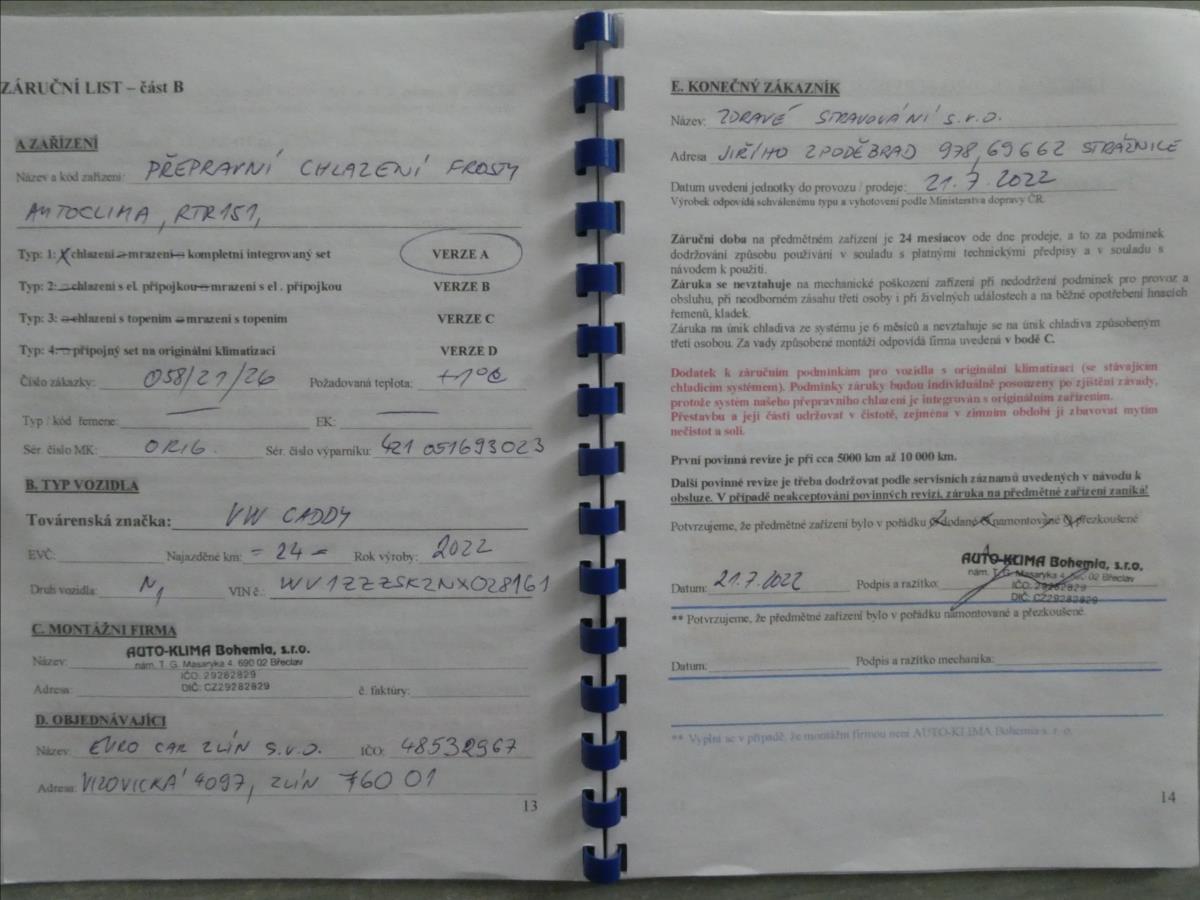 ZÁRUČNÍ LIST – část B
A ZAŘÍZENÍ
Název a kód zařízení: PŘEPRAVNÍ CHLAZENÍ FROSTY
AUTOCLIMA, RTR151,
Typ: 1: chlazení mrazení kompletní integrovaný set VERZE A
Typ: 2: chlazení s el. přípojkou mrazení s el. přípojkou VERZE B
Typ: 3: chlazení s topením mrazení s topením VERZE C
Typ: 4: přípojný set na originální klimatizaci VERZE D
Číslo zákazky: 058/21/26 Požadovaná teplota: +1°C
Typ / kód řemene: — EK: —
Sér. číslo MK: ORIG. Sér. číslo výparníku: 421 051693023
B. TYP VOZIDLA
Továrenská značka: VW CADDY
EVČ: Najazděné km: = 24 = Rok výroby: 2022
Druh vozidla: N1 VIN č.: WV1ZZZSKZNX028161
C. MONTÁŽNI FIRMA
AUTO-KLIMA Bohemia, s.r.o.
Název: nám. T. G. Masaryka 4, 690 02 Břeclav
IČO: 29282829
Adresa: DIČ: CZ29282829 č. faktúry:
D. OBJEDNÁVAJÍCI
Název: EURO CAR ZLÍN s.r.o. IČO: 48532967
Adresa: VIZOVICKÁ 4097, ZLÍN 760 01
13
E. KONEČNÝ ZÁKAZNÍK
Název: ZDRAVÉ STRAVOVÁNÍ s.r.o.
Adresa JIŘÍHO Z PODĚBRAD 978, 69662 STRÁŽNICE
Datum uvedení jednotky do provozu / prodeje: 21.7.2022
Výrobek odpovídá schválenému typu a vyhotovení podle Ministerstva dopravy ČR.
Záruční doba na předmětném zařízení je 24 mesiacov ode dne prodeje, a to za podmínek
dodržování způsobu používání v souladu s platnými technickými předpisy a v souladu s
návodem k použití.
Záruka se nevztahuje na mechanické poškození zařízení při nedodržení podmínek pro provoz a
obsluhu, při neodborném zásahu třetí osoby i při živelných událostech a na běžné opotřebení hnacích
řemenů, kladek.
Záruka na únik chladiva ze systému je 6 měsíců a nevztahuje se na únik chladiva způsobeným
třetí osobou. Za vady způsobené montáží odpovídá firma uvedená v bodě C.
Dodatek k záručním podmínkám pro vozidla s originální klimatizací (se stávajícím
chladicím systémem). Podmínky záruky budou individuálně posouzeny po zjištění závady,
protože systém našeho přepravního chlazení je integrován s originálním zařízením.
Přestavbu a její části udržovat v čistotě, zejména v zimním období ji zbavovat mytím
nečistot a soli.
První povinná revize je při cca 5000 km až 10 000 km.
Další povinné revize je třeba dodržovat podle servisních záznamů uvedených v návodu k
obsluze. V případě neakceptování povinných revizí, záruka na předmětné zařízení zaniká!
Potvrzujeme, že předmětné zařízení bylo v pořádku dodané namontováne přezkoušené
AUTO-KLIMA Bohemia, s.r.o.
nám. T. G. Masaryka 4, 690 02 Břeclav
Datum: 21.7.2022 Podpis a razítko: IČO: 29282829
DIČ: CZ29282829
** Potvrzujeme, že předmětné zařízení bylo v pořádku namontované a přezkoušené.
Datum: Podpis a razítko mechanika:
** Vyplní se v případě, že montážní firmou není AUTO-KLIMA Bohemia s. r. o.
14